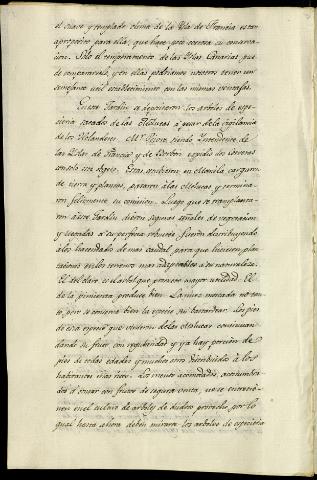 el suave y templado clima de la Isla de Francia es tan
apropósito para ella, que hace poco costosa su conserva-
cion. Solo el temperamento de las Islas Canarias pue-
de comparársele, y en ellas podríamos nosotros tener un
semejante establecimiento con las mismas ventajas.
En este Jardin se depositaron los arboles de espe-
cieria sacados de las Molucas á pesar de la vigilancia
de los Holandeses. Mr. Poivre siendo Intendente de
las Islas de Francia y de Borbon expidió dos Corvetas
con solo este objeto. Estas tomaron en Manila cargam.
de tierra y plantas, pasaron á las Molucas y termina-
ron felizmente su comision. Luego que se transplanta-
ron á este Jardin dieron algunas señales de vegetacion
y crecidas á su perfecta robustez, fueron distribuyendo
á los hacendados de mas caudal para que hiciesen plan-
taciones en los terrenos mas adaptables á su naturaleza.
El del clavo es el arbol que promete mayor utilidad. El
de la pimienta produce bien. La nuez moscada no tan-
to, pero se conserva bien la especie sin bastardear. Los pies
de esta especie que vinieron de las Molucas continuan
dando su fruto con regularidad y ya hay porcion de
pies de todas edades y muchos otros distribuidos á los
habitantes mas ricos. Los menos acomodados, acostumbra-
dos á contar con frutos de segura venta, no se entretie-
nen en el cultivo de arboles de dudoso provecho, por lo
qual hasta ahora deben mirarse los arboles de especieria